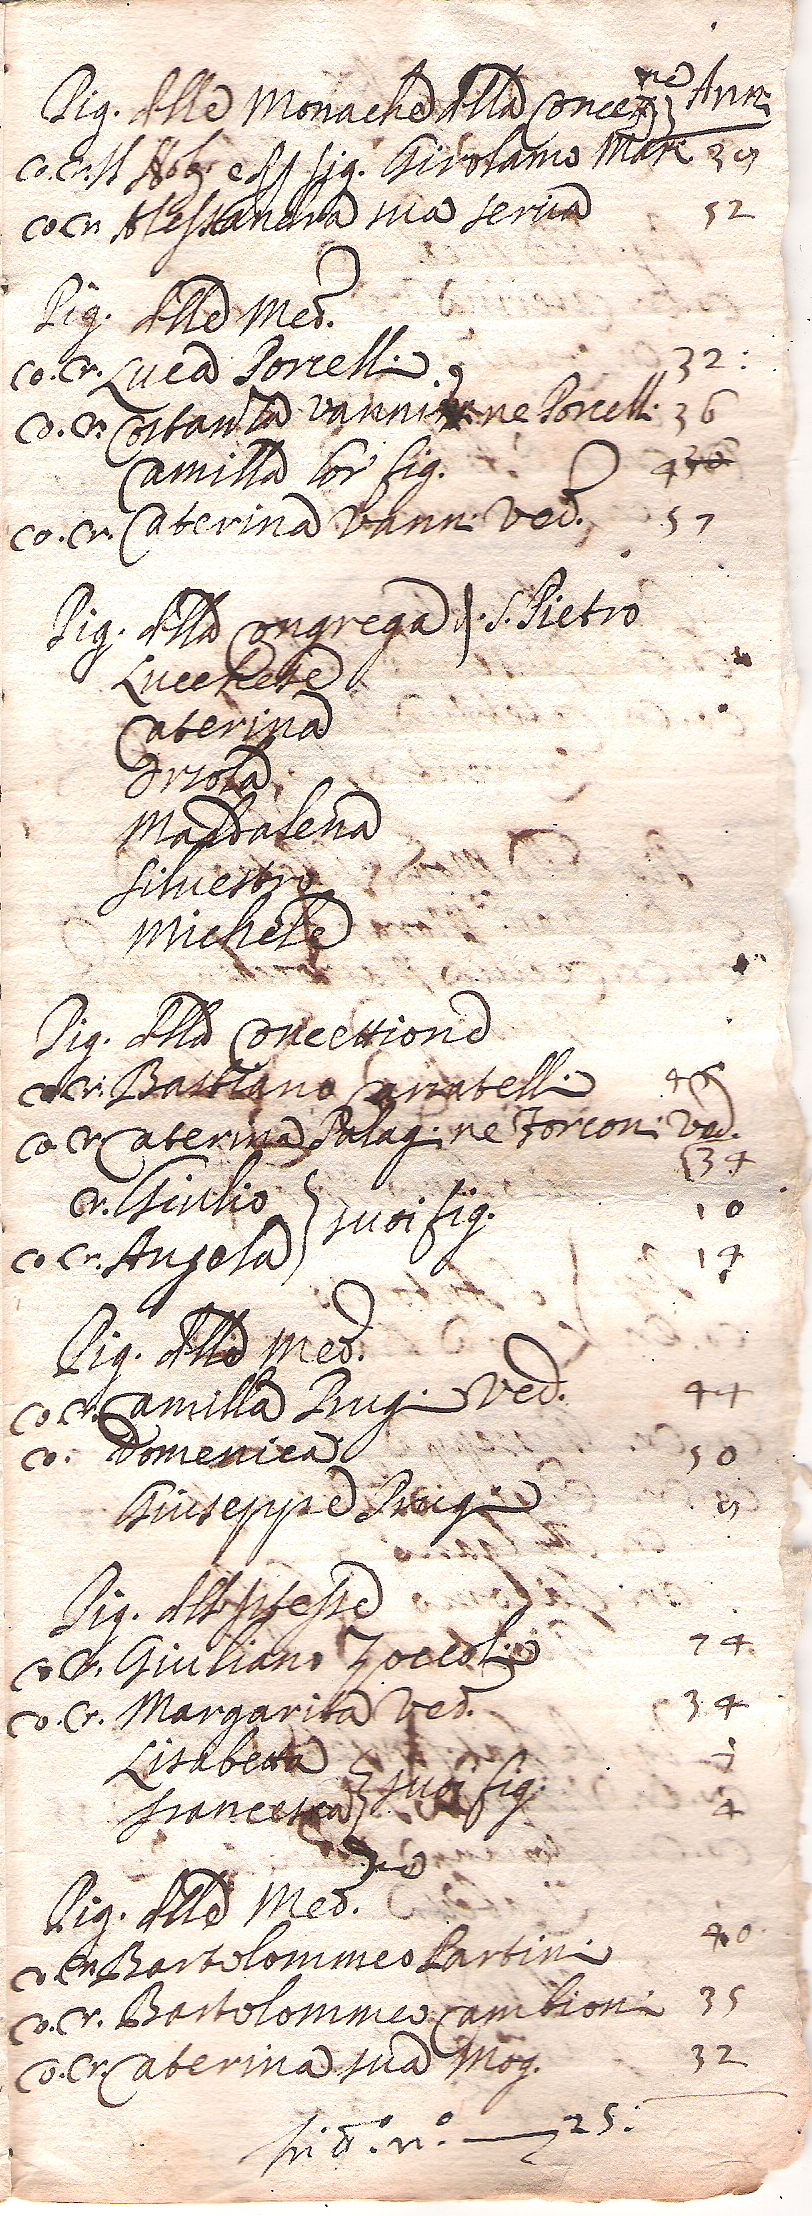 Pig. delle Monache della Concez.ne Anni
co. cr. Il Nob. e sig. Girolamo Mar. 39
co cr Alessandra sua serva 52
Pig. delle Med.e
co. cr. Luca Porcelli 32:
co. cr. Costanza Vannini ne Porcelli 36
Camilla lor fig. 4
co. cr. Caterina Vanni Ved.a 57
Pig. della Congrega d. S. Pietro
Lucchese
Caterina
Orsola
Maddalena
Silvestro
Michele
Pig. della Concettione
co cr. Bastiano Carratelli 46
co cr Caterina Palagi ne Forconi Ved.
34
cr. Giulio } suoi fig. 10
co cr. Angela 14
Pig. delle Med.e
co cr. Camilla Prugi Ved. 44
co. Domenica 50
Giuseppe Prugi 9
Pig. dell istesse
co cr. Giuliano Zoccoli 74
co. cr. Margarita Ved. 34
Lisabetta } suoi fig. 7
Francesca 4
Pig. delle Med.me
co cr. Bartolommeo Partini 40
co. cr. Bartolommeo Cambioni 35
co. cr. Caterina sua Mog. 32
n.o 25: